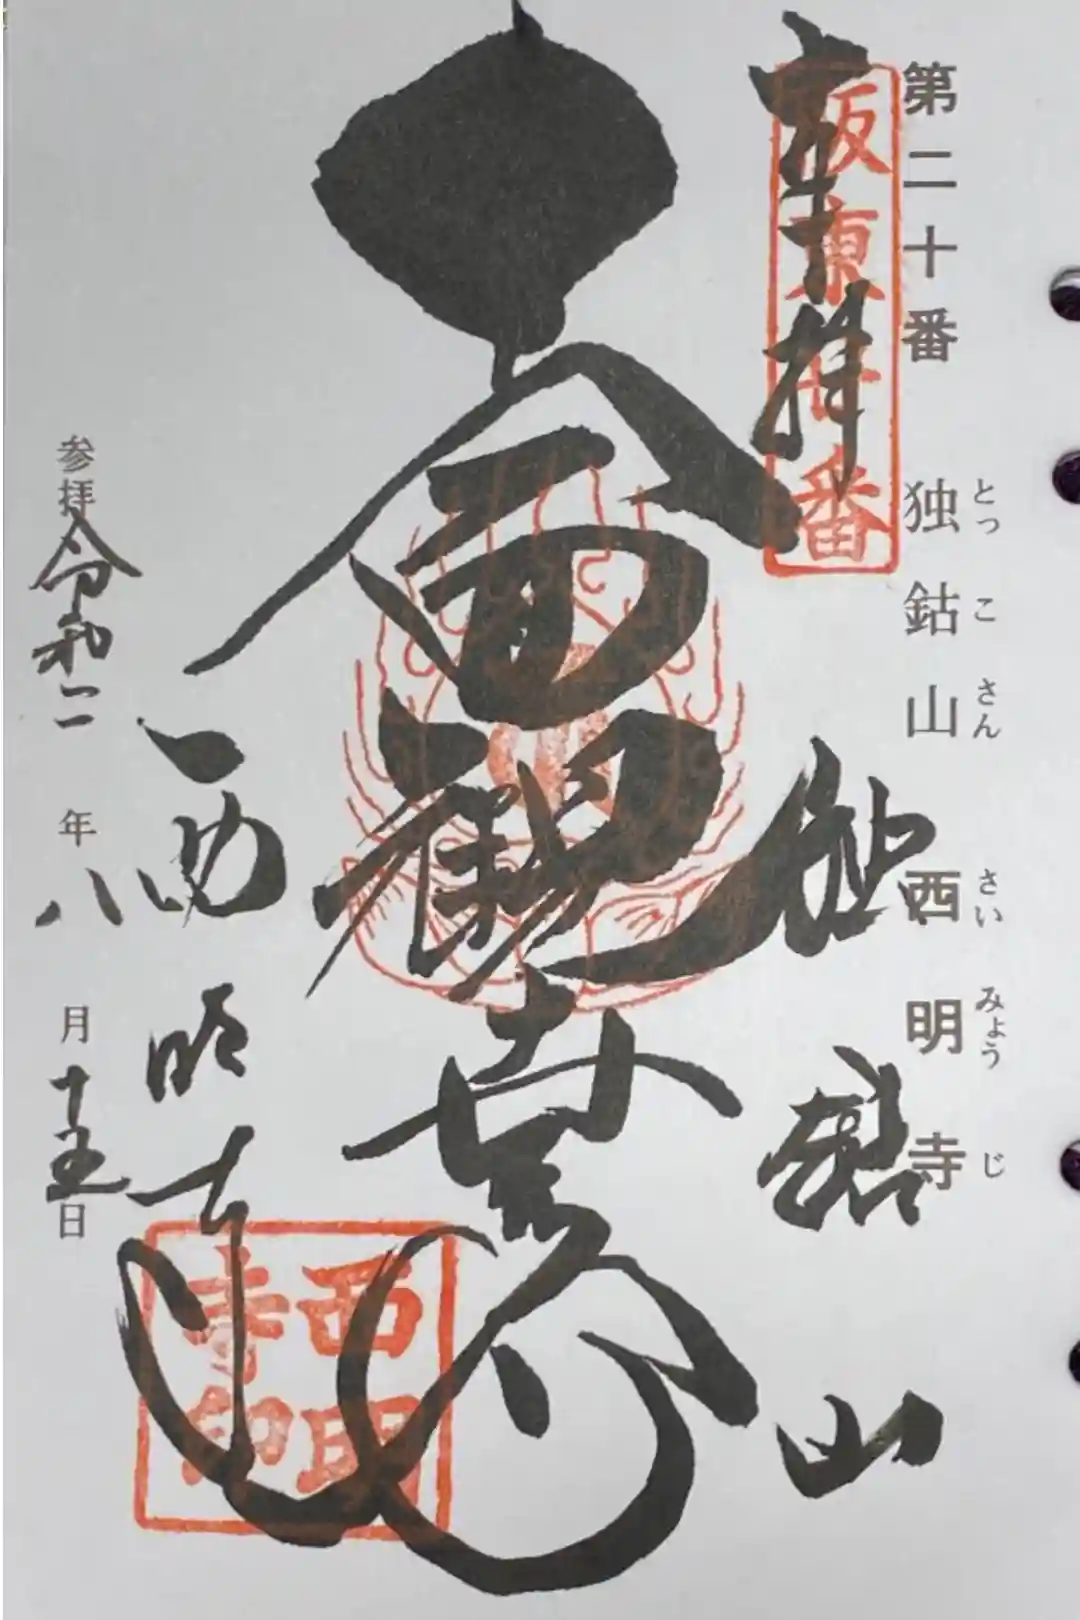 第二十番
独鈷山 西明寺
とっ こ さん さい みょう じ
奉拝
坂東廿番
独鈷山
西明寺
西明寺印
参拝令和二年八月十五日